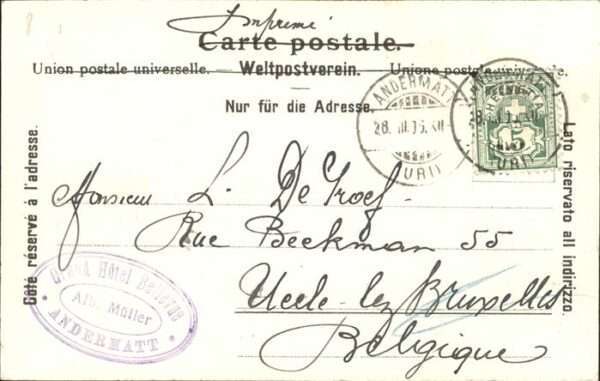 Imprimé
Carte postale.
Union postale universelle. — Weltpostverein. — Unione postale universale.
Nur für die Adresse.
Côté réservé à l'adresse.
Lato riservato all indirizzo.
ANDERMATT
28.III.05.XII
(URI)
ANDERMATT
(URI)
HELVETIA
5
Monsieur L. De Troef
Rue Beekman 55
Uccle-lez Bruxelles
Belgique
Grand Hôtel Bellevue
Alb. Müller
ANDERMATT